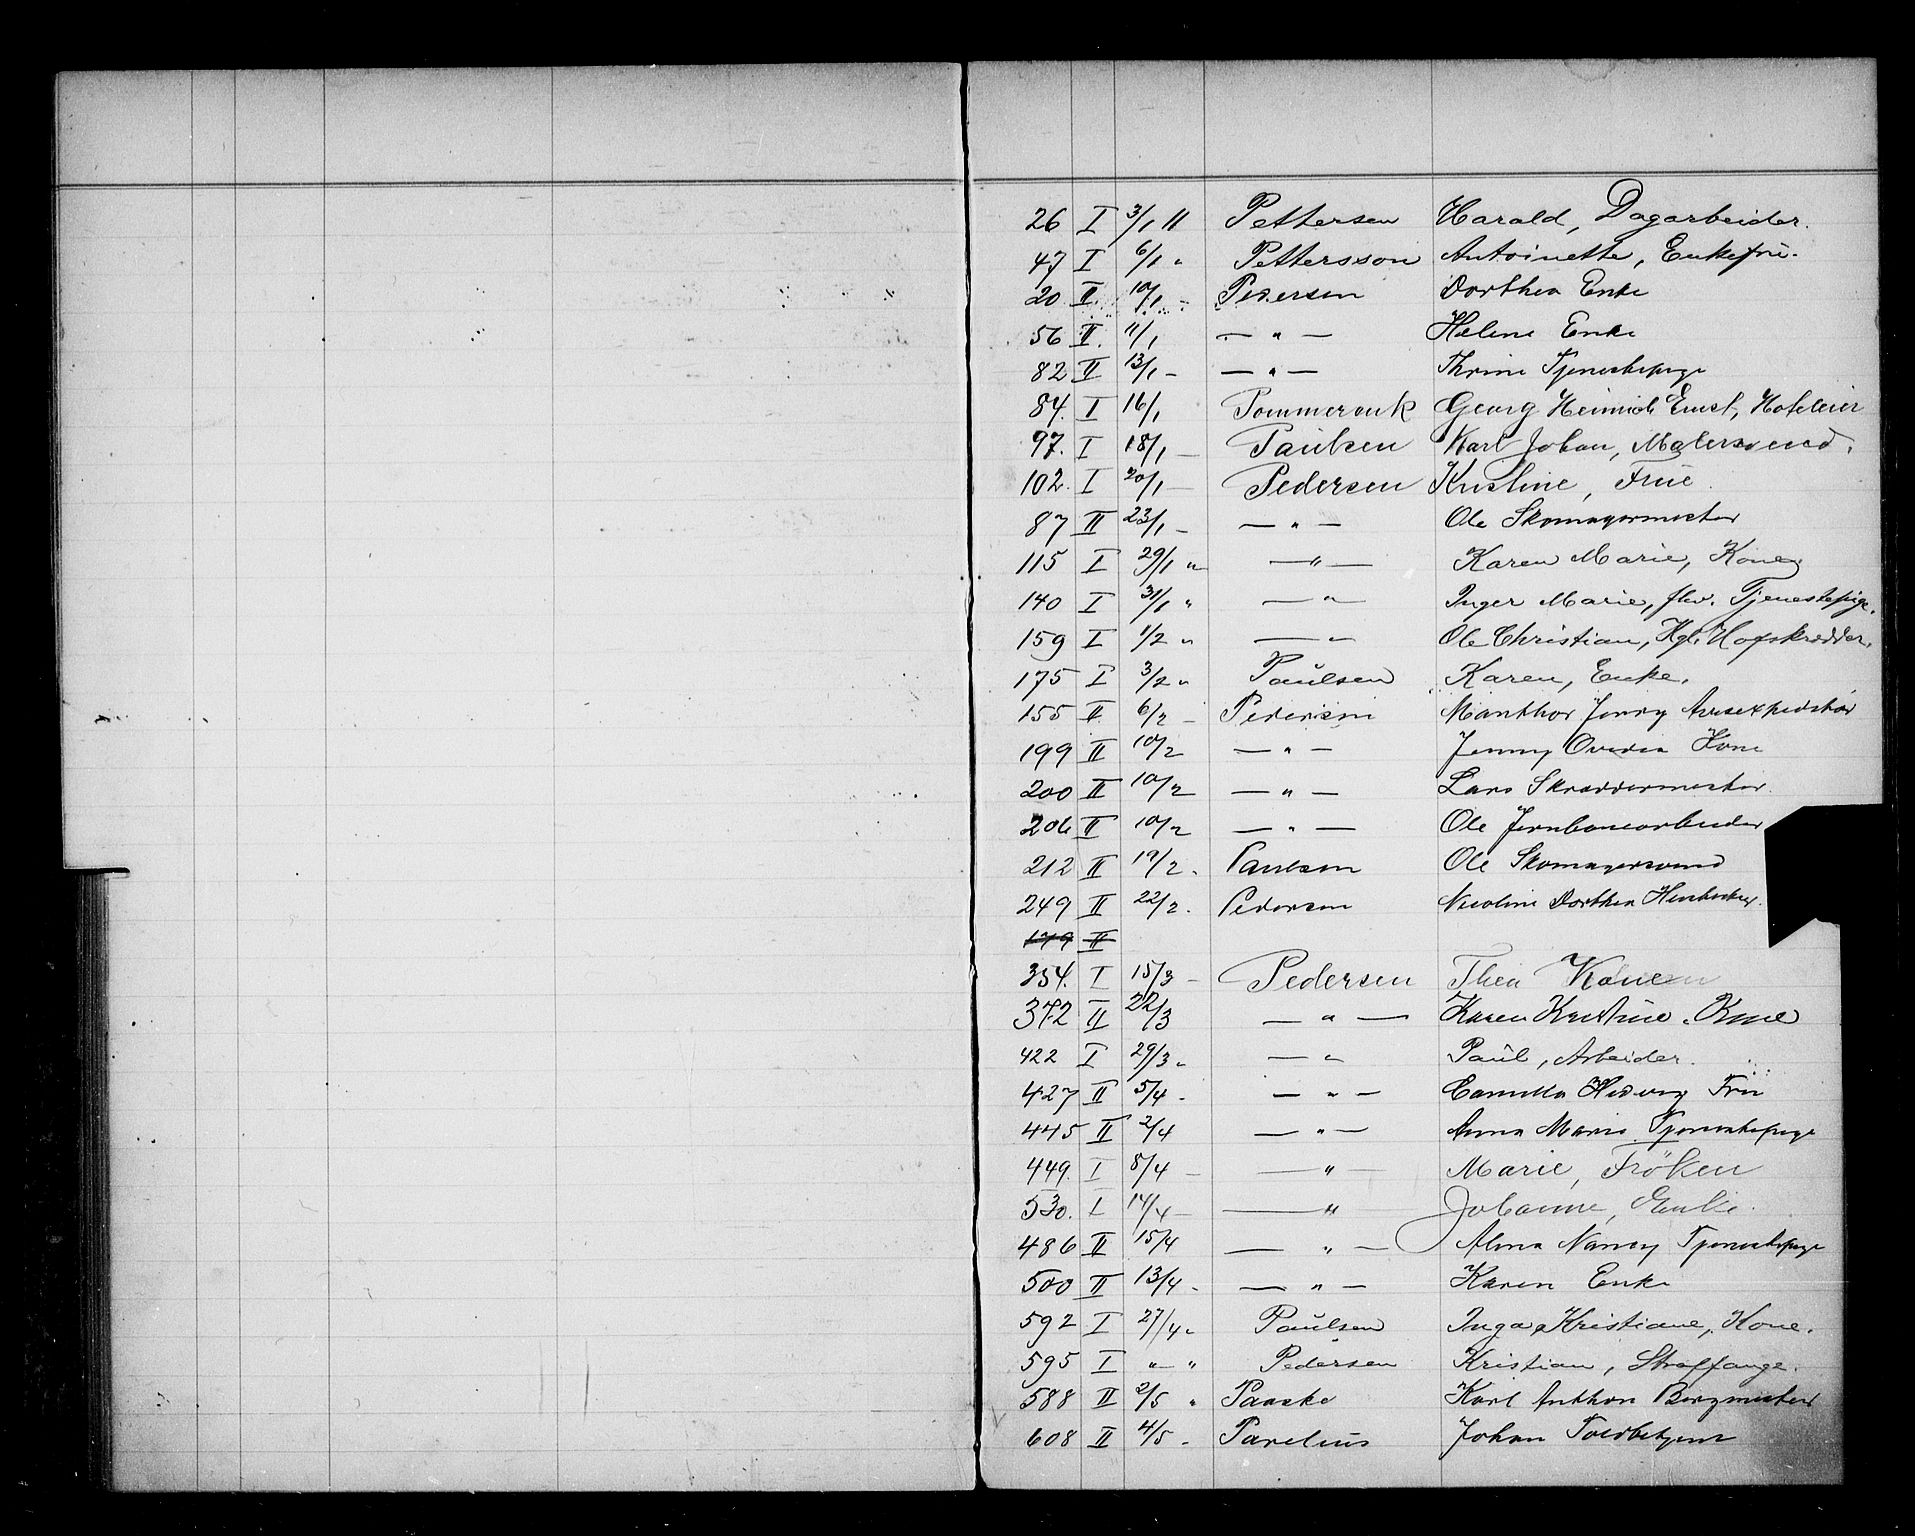 26 I 3/1 11 Pettersen Harald, Dagarbeider.
47 I 6/1 " Pettersson Antoinette, Enkefru.
20 II 10/1 - Pedersen Dorthea Enke
56 II 11/1 — " — Helene Enke
82 II 13/1 - — " — Thrine Tjenestepige
84. I 16/1 Pommerenk Georg Heinrich Ernst, Hoteleier
97. I 18/1 — Paulsen Karl Johan, Malersvend.
102. I 20/1 — Pedersen Kristine, Frue.
87 II 23/1 - — " — Ole Skomagermester
115 I 29/1 " — " — Karen Marie, Kone
140 I 31/1 " — " — Inger Marie, fhv. Tjenestepige.
159 I 1/2 " — " — Ole Christian, Kgl. Hofskrædder.
175 I 3/2 " Paulsen Karen, Enke.
155 II 6/2 - Pedersen Manthor Jenry Avisexpeditør
199 II 10/2 — " — Jenny Ovedia Kone
200 II 10/2 — " — Lars Skræddermester.
206 II 10/2 — " — Ole Jernbanearbeider
212 II 19/2 . Paulsen Ole Skomagersvend
249 II 22/2 . Pedersen Nicoline Dorthea
179 II
354. I 15/3 - Pedersen Thea Kone
372 II 22/3 — " — Karen Kristine. Kone
422 I 29/3 " — " Paul, Arbeider.
427 II 5/4 - — " — Camilla Hedvig Frue
445 II 2/4 — " — Anna Marie Tjenestepige
449. I 8/4 — — " — Marie, Fröken
530. I 14/4 — — " Johanne, Enke.
486 II 15/4 — " — Alma Nancy Tjenestepige
500 II 13/4 - — " — Karen Enke
592 I 27/4 " Paulsen Inga Kristiane, Kone.
595 I " " Pedersen Kristian, Straffange.
588 II 2/5 " Paaske Karl Anthon Bergmester
608 II 4/5 - Parelius Johan Toldbetjent